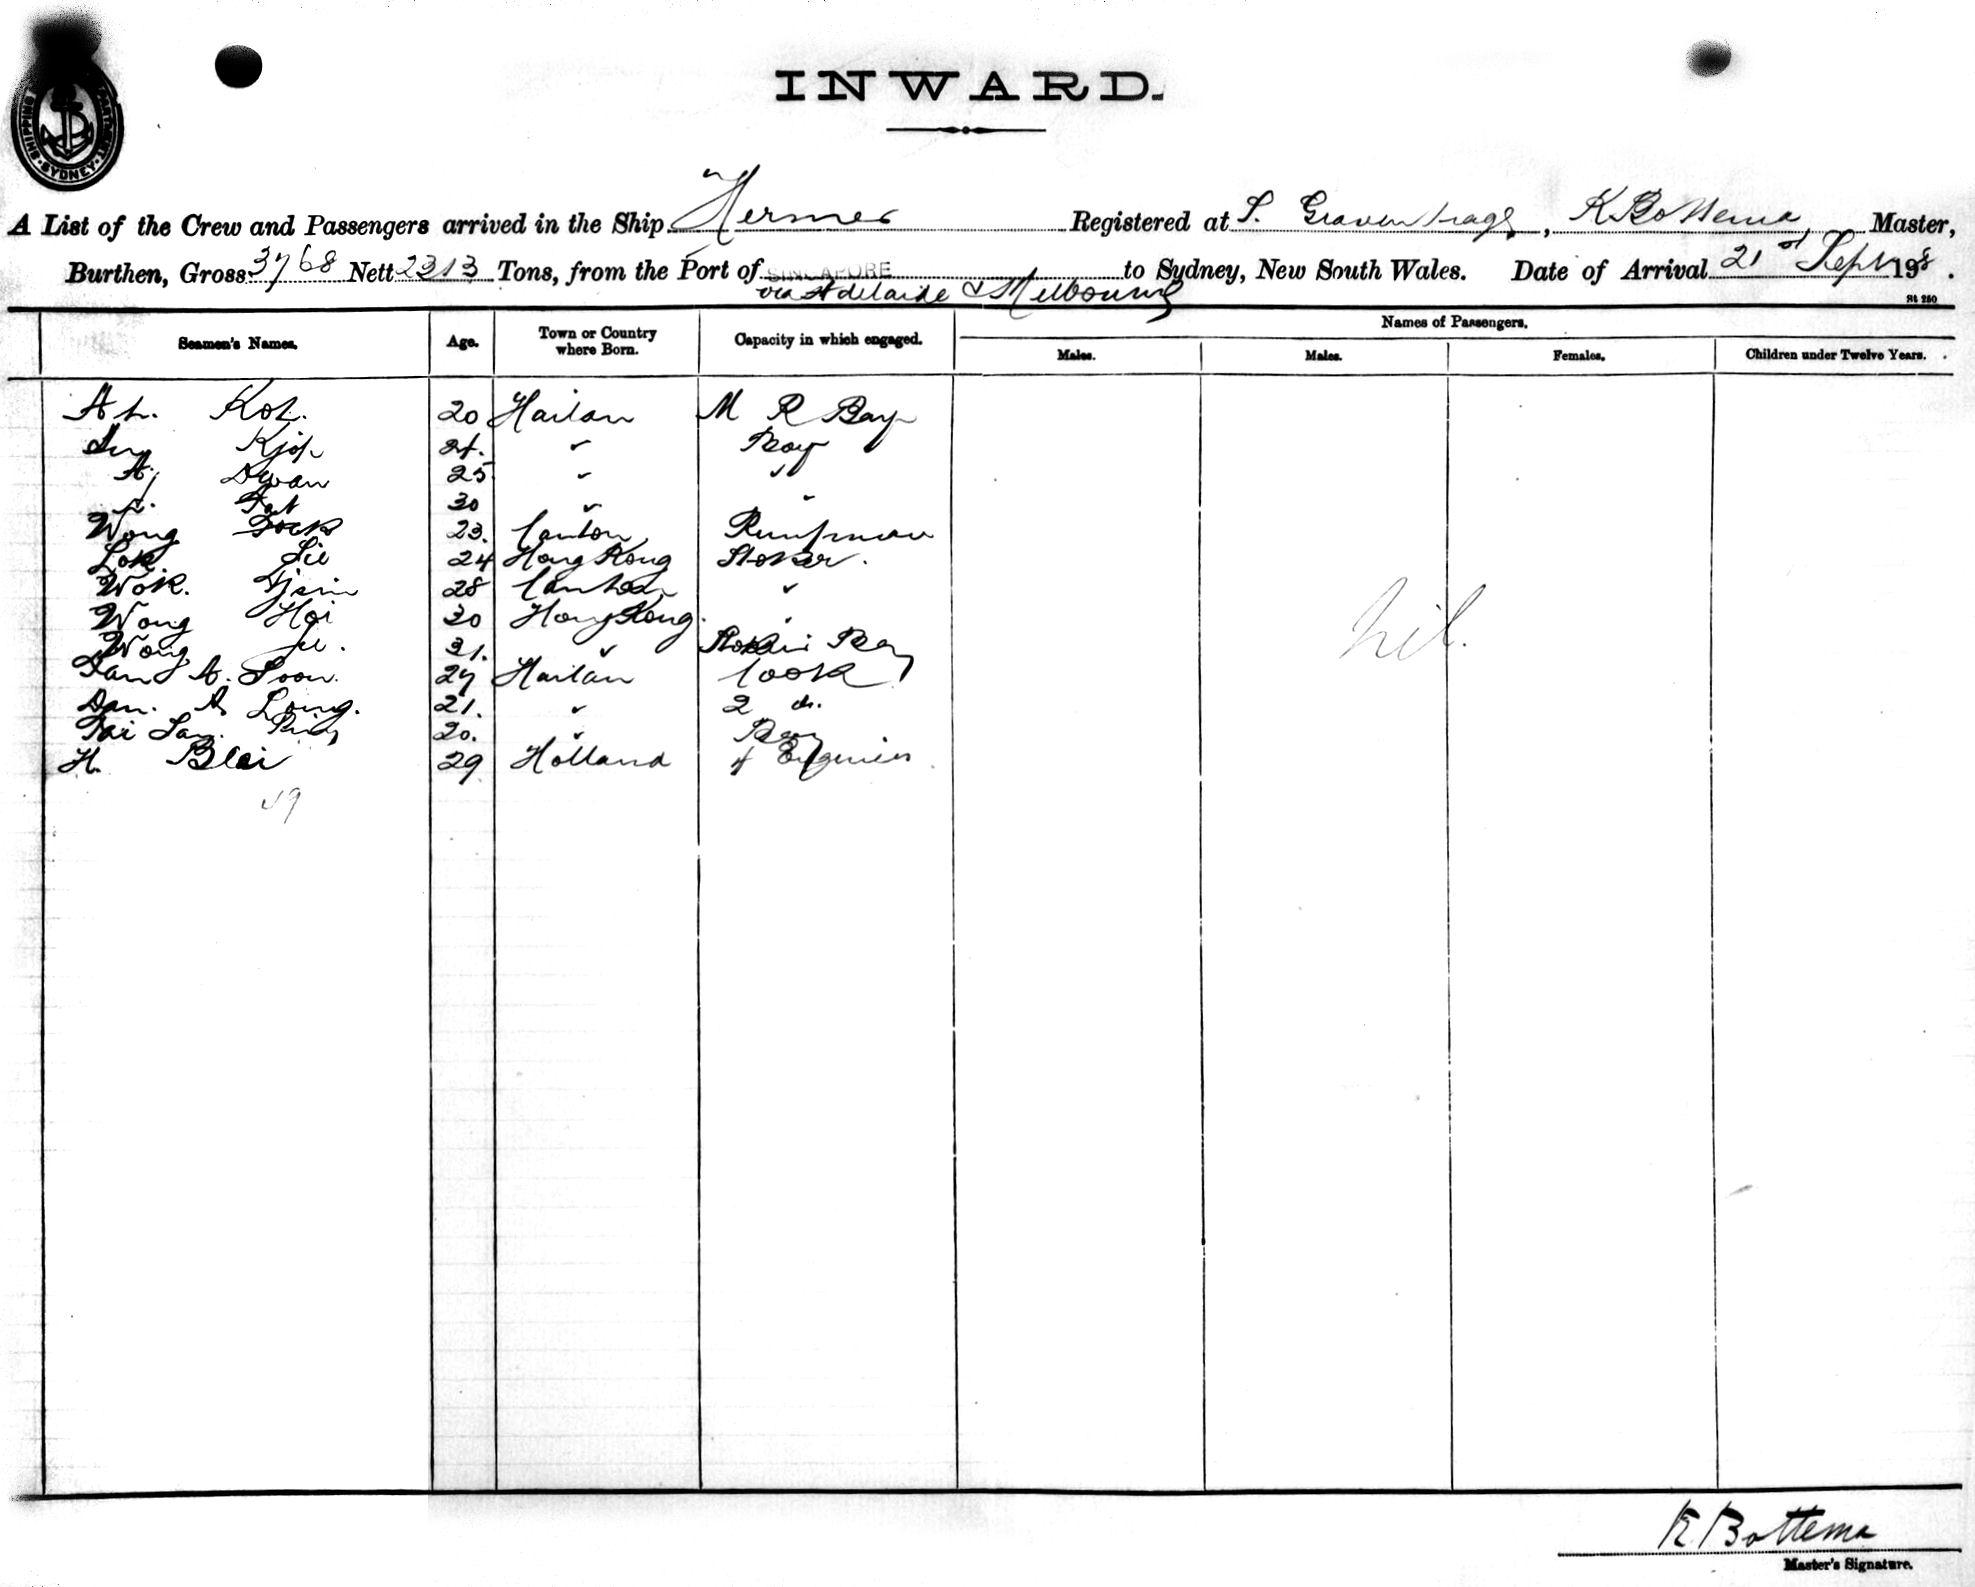 SHIPPING DEPARTMENT SYDNEY
INWARD.
A List of the Crew and Passengers arrived in the Ship Hermes Registered at S. Gravenhage, K Bottema, Master,
Burthen, Gross 3768 Nett 2313 Tons, from the Port of SINGAPORE to Sydney, New South Wales. Date of Arrival 21st Sept 198.
via Adelaide & Melbourne
Seamen's Names. Age. Town or Country where Born. Capacity in which engaged. Names of Passengers.
Males. Males. Females. Children under Twelve Years.
Ah. Koh. 20 Hailan M R Boy
Kjop 24. " Boy
A. 25 " "
30 " "
Wong 23. Canton Pumpman
Lok. Sie 24 Hong Kong Stoker.
Wok. Tjsin 28 Canton "
Wong Hoi 30 Hong Kong. "
Wong 31. " Boy
A. Soon. 27 Hailan Cook
A. Long. 21. " 2 do.
20. " Boy
H. Blei 29 Holland 4 Engenier
49
nil.
K Bottema
Master's Signature.